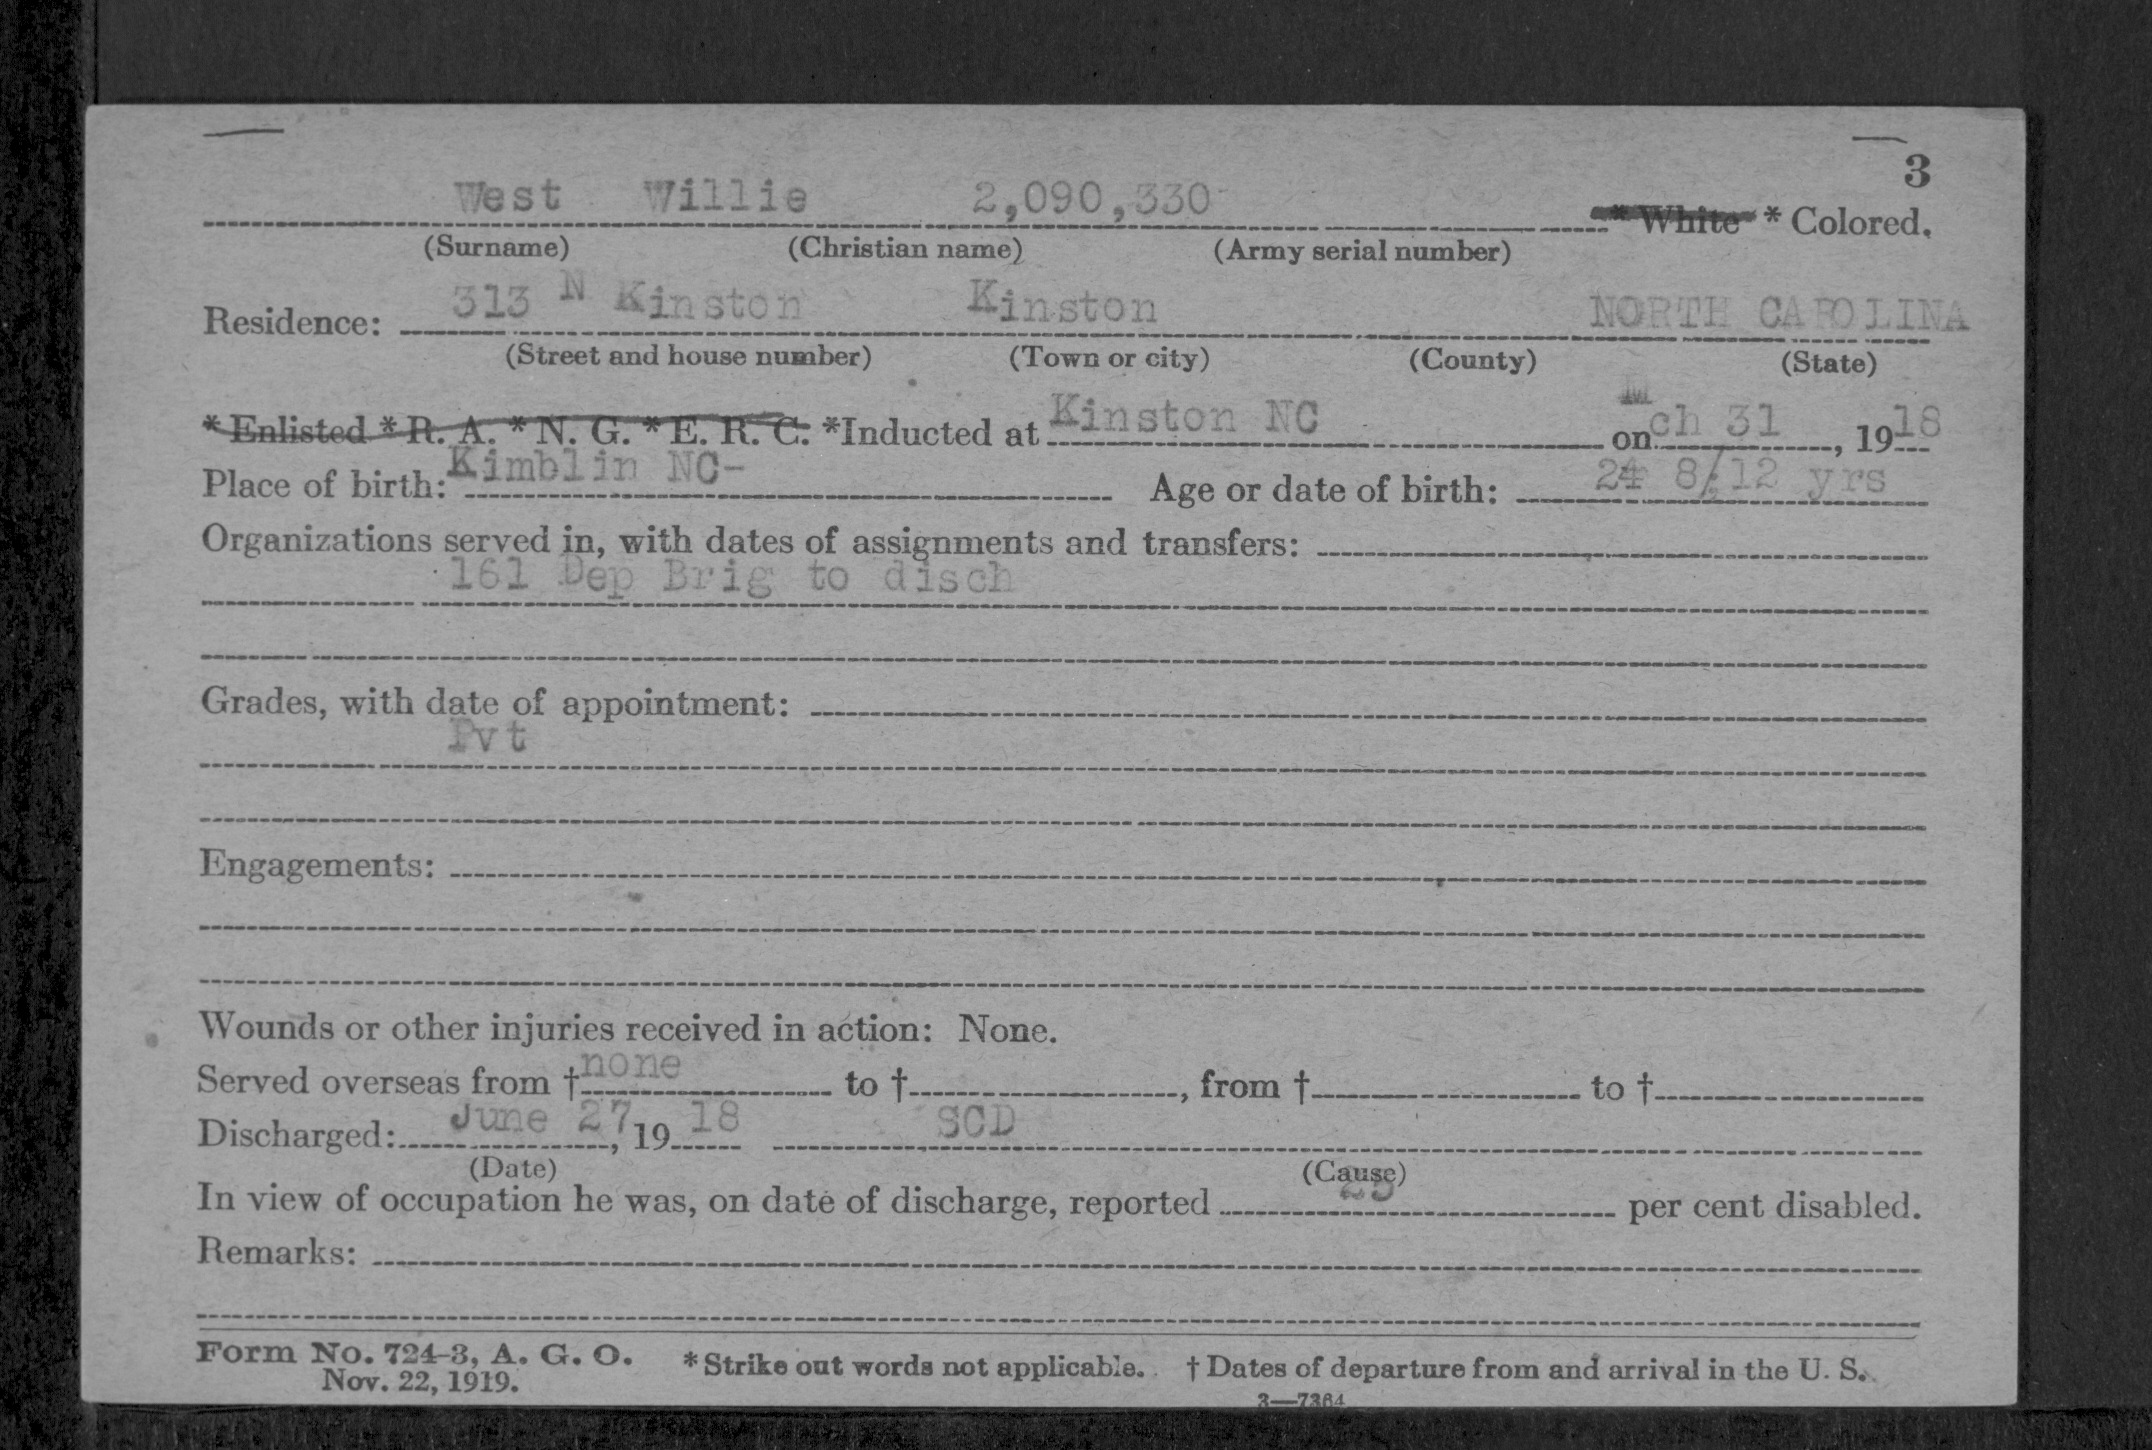 3
West Willie 2,090,330 * White * Colored.
(Surname) (Christian name) (Army serial number)
Residence: 313 N Kinston Kinston NORTH CAROLINA
(Street and house number) (Town or city) (County) (State)
* Enlisted * R. A. * N. G. * E. R. C. *Inducted at Kinston NC on Mch 31, 1918
Place of birth: Kimblin NC- Age or date of birth: 24 8/12 yrs
Organizations served in, with dates of assignments and transfers:
161 Dep Brig to disch
Grades, with date of appointment:
Pvt
Engagements:
Wounds or other injuries received in action: None.
Served overseas from † none to †, from † to †
Discharged: June 27, 1918 SCD
(Date) (Cause)
In view of occupation he was, on date of discharge, reported 25 per cent disabled.
Remarks:
Form No. 724-3, A. G. O. * Strike out words not applicable. † Dates of departure from and arrival in the U. S.
Nov. 22, 1919.
3—7364